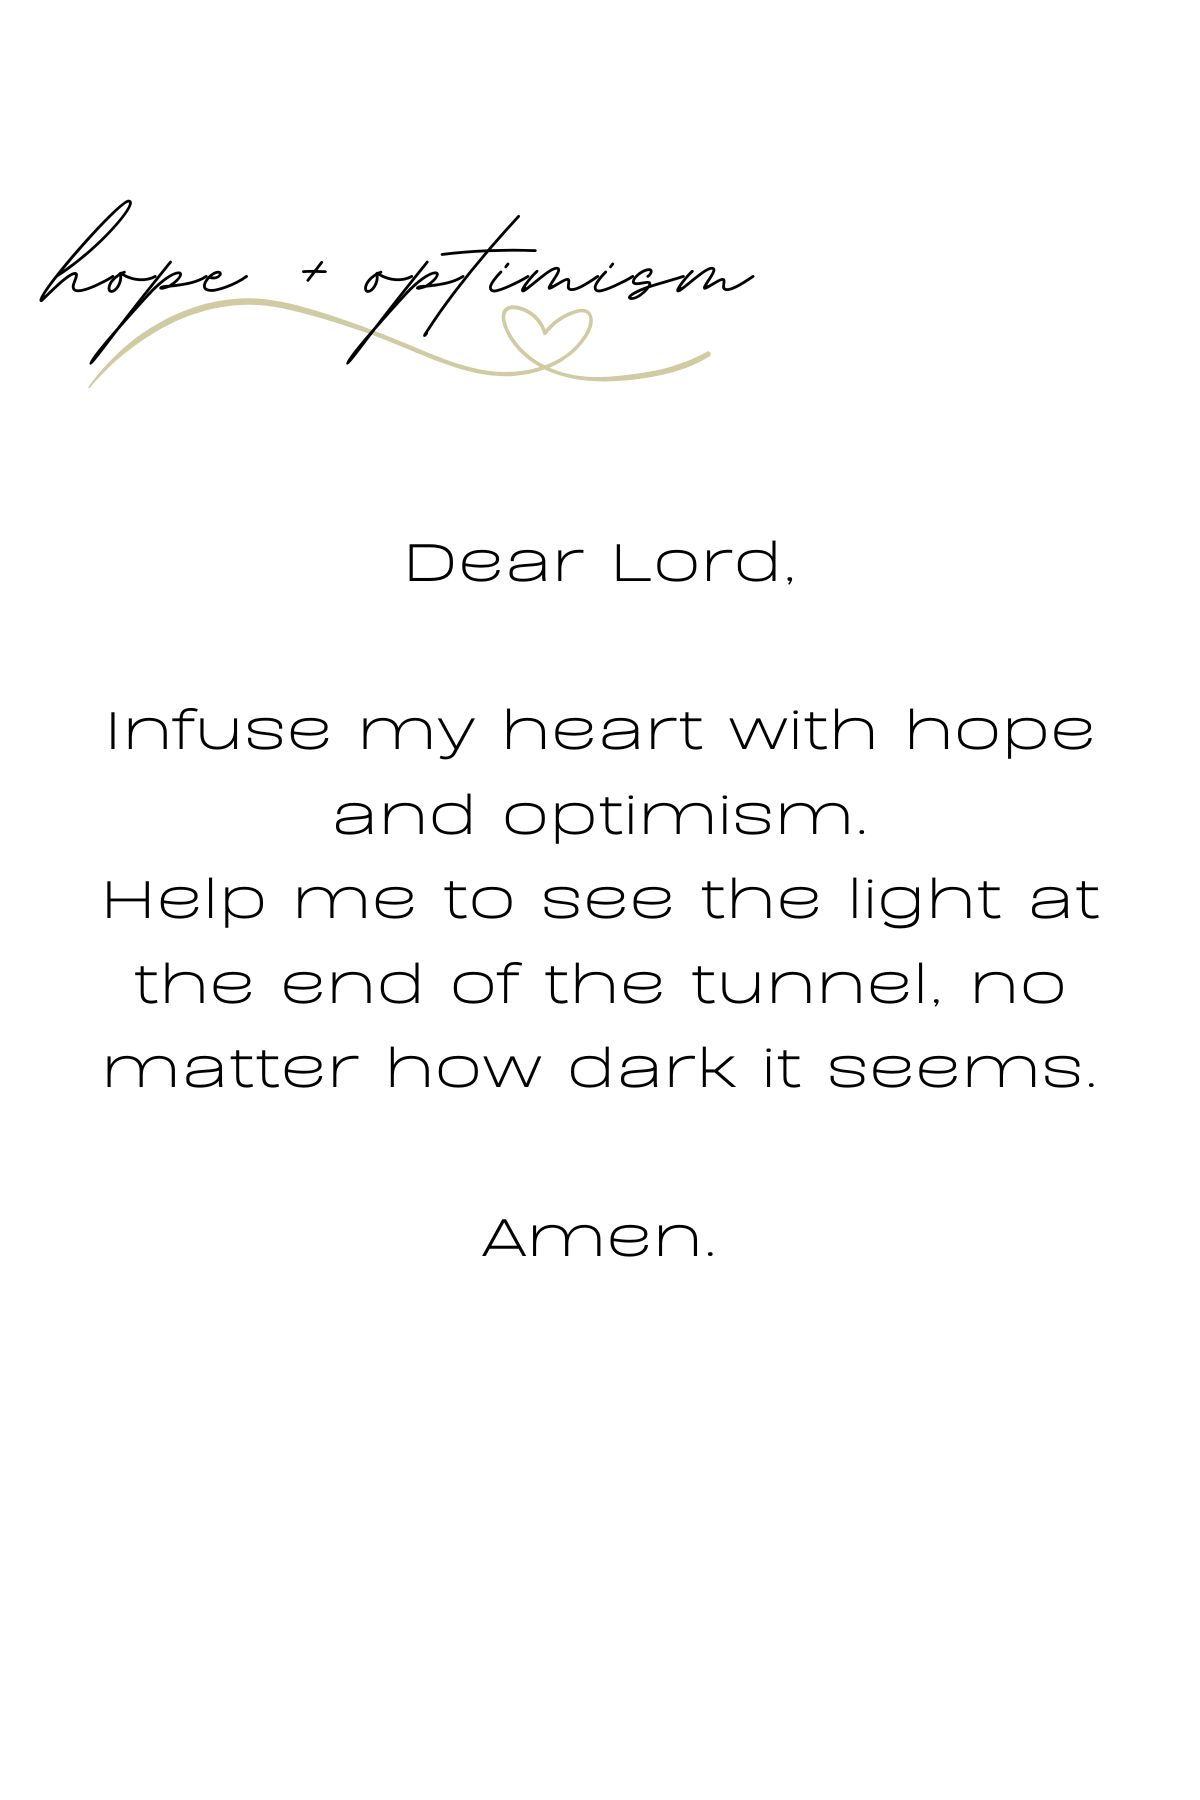 hope + optimism
Dear Lord,
Infuse my heart with hope
and optimism.
Help me to see the light at
the end of the tunnel, no
matter how dark it seems.
Amen.